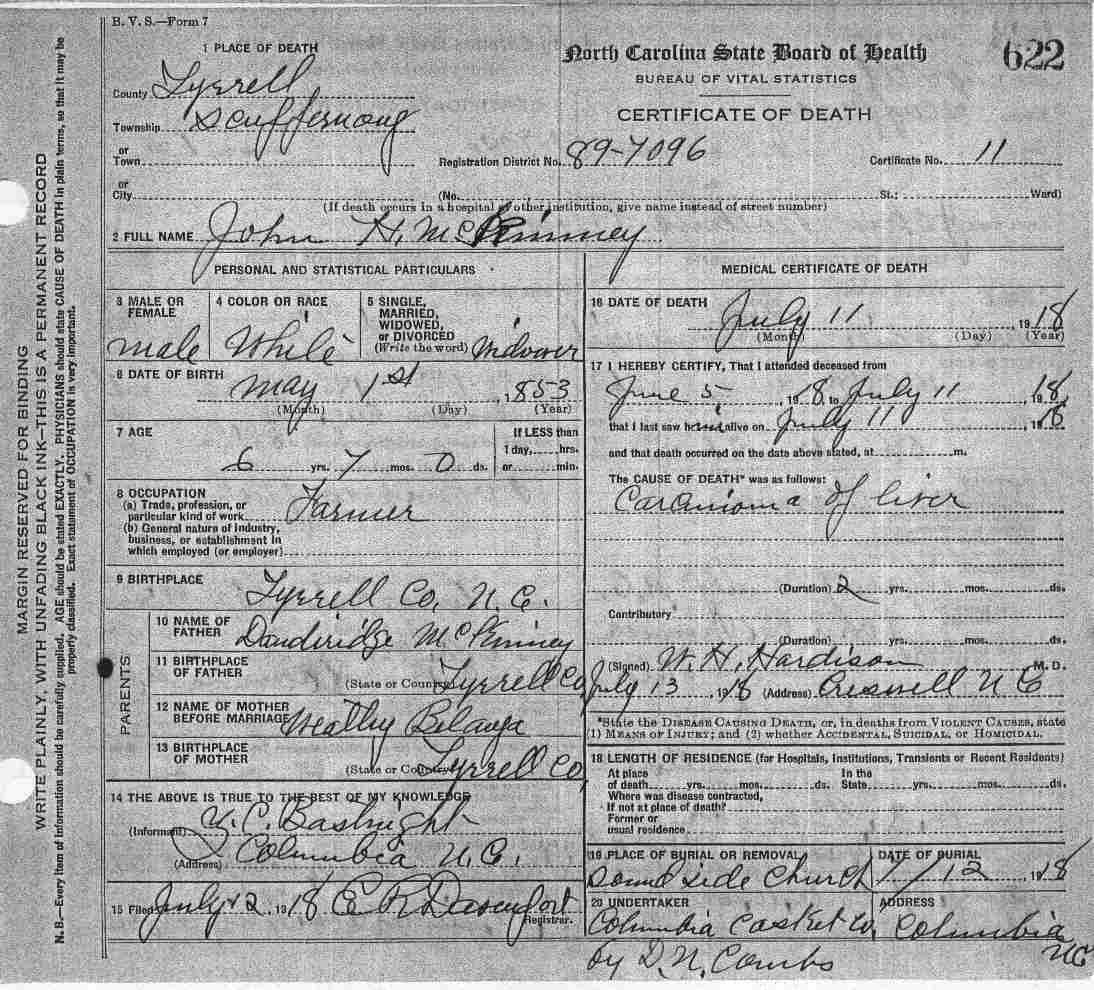 B. V. S.—Form 7
1 PLACE OF DEATH
North Carolina State Board of Health
622
BUREAU OF VITAL STATISTICS
CERTIFICATE OF DEATH
County Tyrrell
Township Scuppernong
or
Town
Registration District No. 89-7096
Certificate No. 11
or
City
(No.
St.;
Ward)
(If death occurs in a hospital or other institution, give name instead of street number)
2 FULL NAME John H. McKinney
PERSONAL AND STATISTICAL PARTICULARS
3 MALE OR FEMALE
male
4 COLOR OR RACE
White
5 SINGLE, MARRIED, WIDOWED, or DIVORCED
(Write the word) Widower
6 DATE OF BIRTH
May 1st, 1853
(Month) (Day) (Year)
7 AGE
If LESS than
1 day,......hrs.
6 yrs. 7 mos. 0 ds.
or......min.
8 OCCUPATION
(a) Trade, profession, or
particular kind of work Farmer
(b) General nature of industry,
business, or establishment in
which employed (or employer)
9 BIRTHPLACE
Tyrrell Co, N.C.
PARENTS
10 NAME OF FATHER
McKinney
11 BIRTHPLACE OF FATHER
(State or Country) Tyrrell Co,
12 NAME OF MOTHER BEFORE MARRIAGE
13 BIRTHPLACE OF MOTHER
(State or Country) Tyrrell Co,
14 THE ABOVE IS TRUE TO THE BEST OF MY KNOWLEDGE
(Informant) Y. C. Basnight
(Address) Columbia N.C.
15 Filed July 12, 1918 E R Davenport
Registrar.
MEDICAL CERTIFICATE OF DEATH
16 DATE OF DEATH
July 11, 1918
(Month) (Day) (Year)
17 I HEREBY CERTIFY, That I attended deceased from
June 5, 1918, to July 11, 1918,
that I last saw him alive on July 11, 1918
and that death occurred on the date above stated, at......m.
The CAUSE OF DEATH* was as follows:
Carcinioma of liver
(Duration) 2 yrs. mos. ds.
Contributory
(Duration) yrs. mos. ds.
(Signed) W. H. Hardison M. D.
July 13 1918 (Address) Creswell N C
*State the DISEASE CAUSING DEATH, or, in deaths from VIOLENT CAUSES, state
(1) MEANS OF INJURY; and (2) whether ACCIDENTAL, SUICIDAL, or HOMICIDAL.
18 LENGTH OF RESIDENCE (for Hospitals, Institutions, Transients or Recent Residents)
At place In the
of death......yrs......mos......ds. State......yrs......mos......ds.
Where was disease contracted,
if not at place of death?
Former or
usual residence
19 PLACE OF BURIAL OR REMOVAL
Sound Side Church
DATE OF BURIAL
7/12 1918
20 UNDERTAKER
Columbia Casket Co,
by D. N. Combs
ADDRESS
Columbia
NC
MARGIN RESERVED FOR BINDING
WRITE PLAINLY, WITH UNFADING BLACK INK—THIS IS A PERMANENT RECORD
N. B.—Every item of information should be carefully supplied. AGE should be stated EXACTLY. PHYSICIANS should state CAUSE OF DEATH in plain terms, so that it may be
properly classified. Exact statement of OCCUPATION is very important.